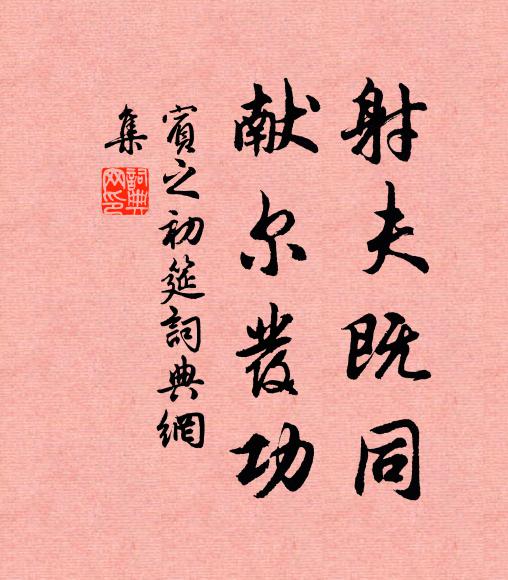 射夫既同
献尔發功
賓之初筵詞典網
集
詞典
网印